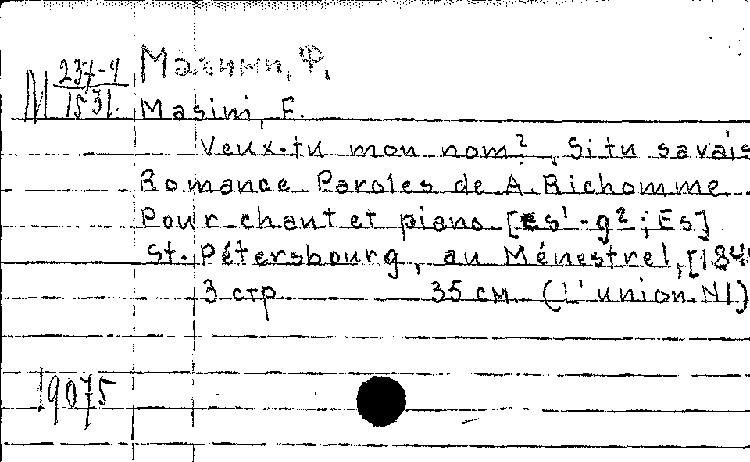 М 237-9/1531. Мазини, Ф.
Masini, F.
Veux-tu mon nom?, Si tu savais
Romance Paroles de A. Richomme
Pour chant et piano [es¹-g²; Es]
St. Pétersbourg, au Ménestrel, [184
3 стр. 35 см (L'union N1)
19075